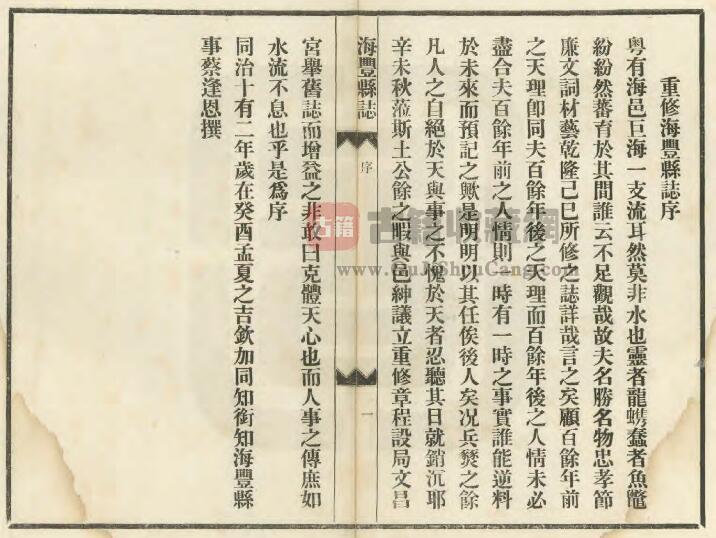 重修海豐縣誌序
粤有海邑巨海一支流耳然莫非水也靈者龍螭蠢者魚鼈
紛紛然蕃育於其間誰云不足觀哉故夫名勝名物忠孝節
廉文詞材藝乾隆己巳所修之誌詳哉言之矣顧百餘年前
之天理卽同夫百餘年後之天理而百餘年後之人情未必
盡合夫百餘年前之人情則一時有一時之事實誰能逆料
於未來而預記之歟是明明以其任俟後人矣况兵燹之餘
凡人之自絕於天與事之不愧於天者忍聽其日就銷沉耶
辛未秋蒞斯土公餘之暇與邑紳議立重修章程設局文昌
海豐縣誌
序
一
宮舉舊誌而增益之非敢曰克體天心也而人事之傳庶如
水流不息也乎是爲序
同治十有二年歲在癸酉孟夏之吉欽加同知銜知海豐縣
事蔡逢恩撰
古籍
古籍收藏網
www.GuJiShouCang.com